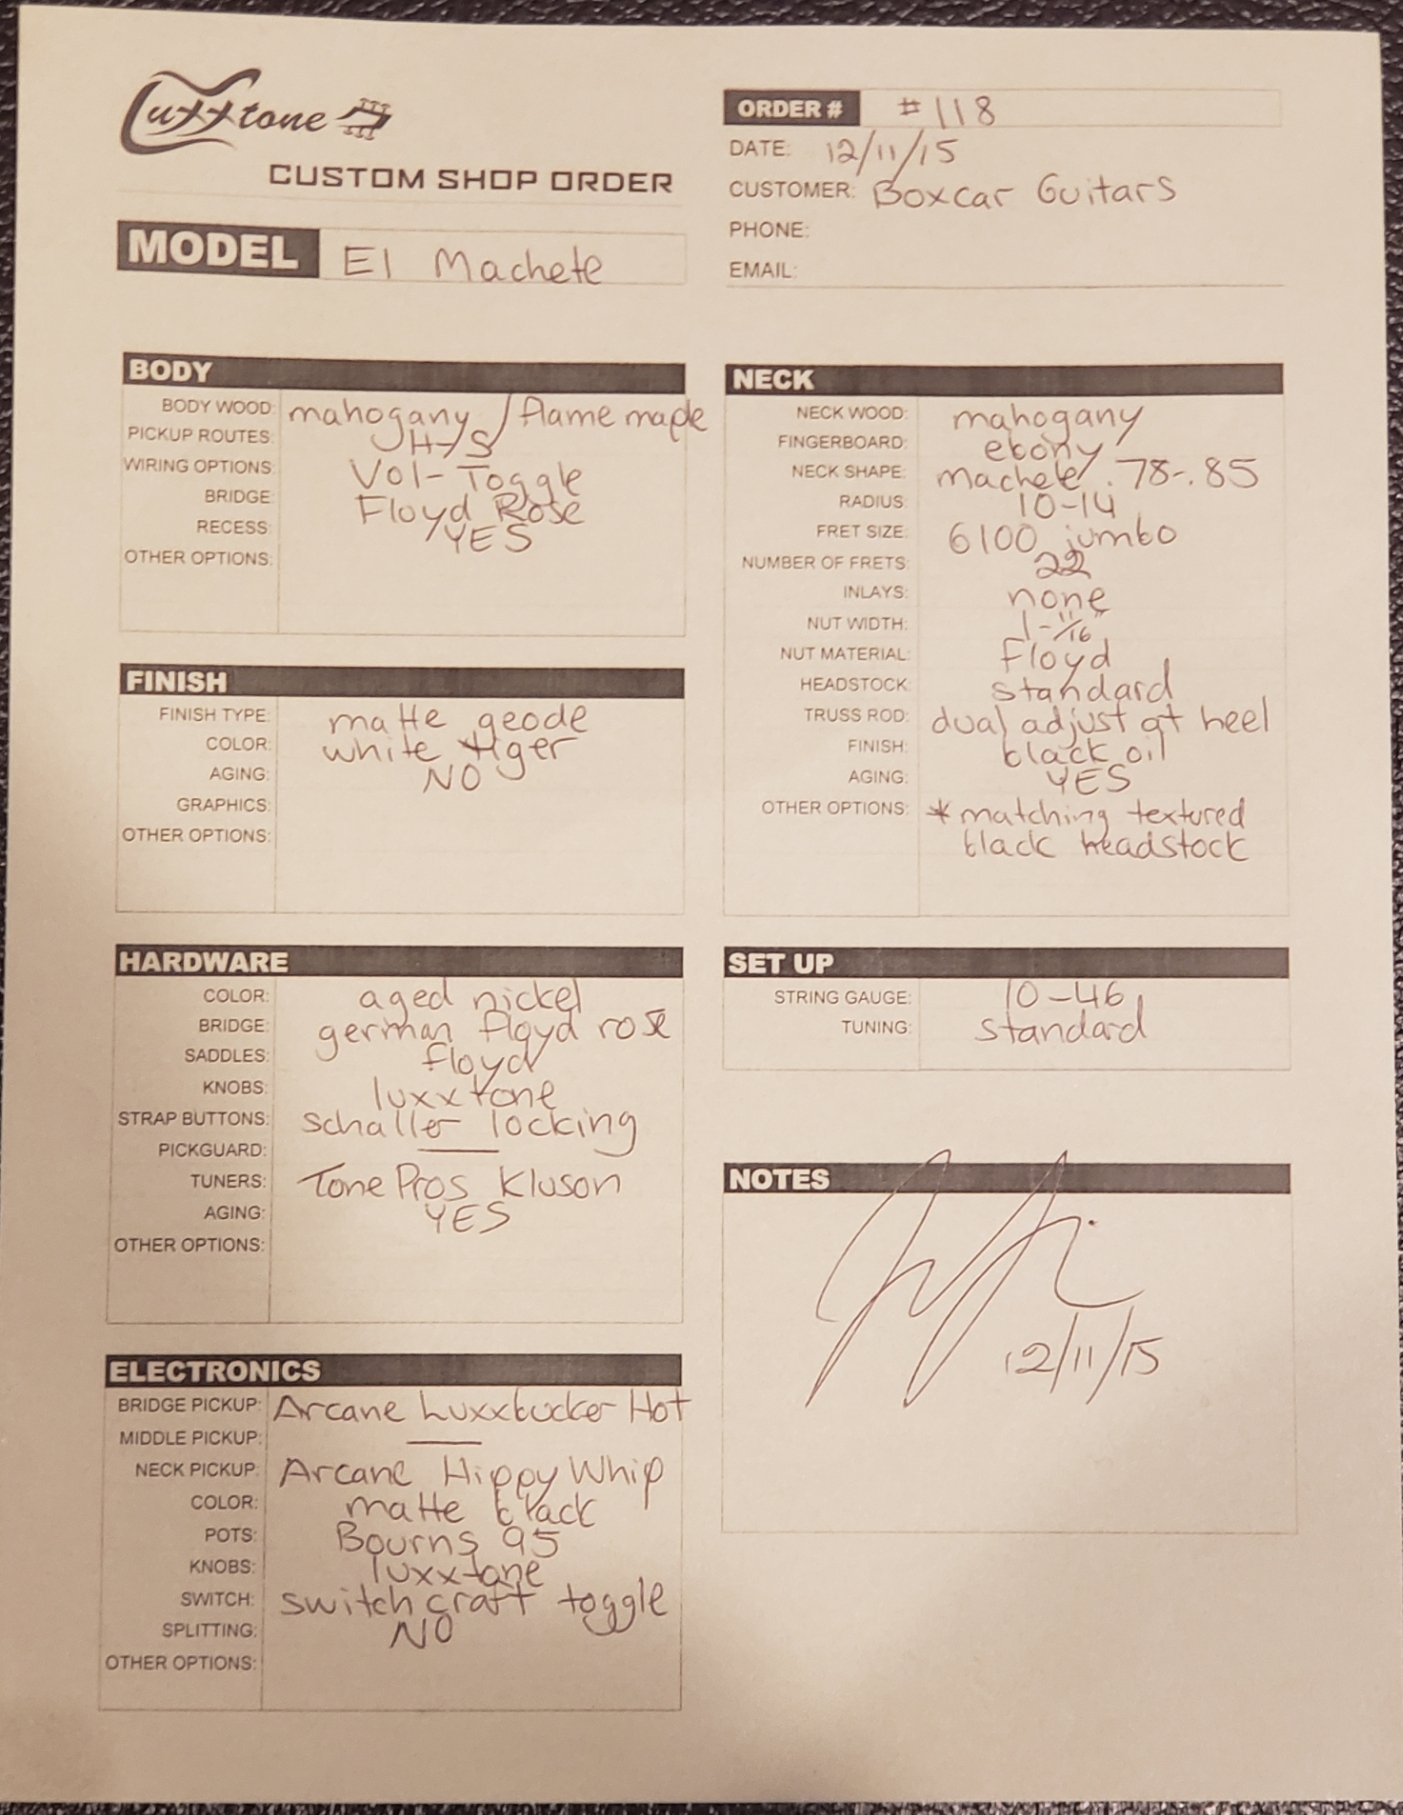 Luxxtone
CUSTOM SHOP ORDER
MODEL El Machete
ORDER # #118
DATE: 12/11/15
CUSTOMER: Boxcar Guitars
PHONE:
EMAIL:
BODY
BODY WOOD: mahogany / flame maple
PICKUP ROUTES: H-S
WIRING OPTIONS: Vol-Toggle
BRIDGE: Floyd Rose
RECESS: YES
OTHER OPTIONS:
FINISH
FINISH TYPE: matte geode
COLOR: white tiger
AGING: NO
GRAPHICS:
OTHER OPTIONS:
HARDWARE
COLOR: aged nickel
BRIDGE: german floyd rose
SADDLES: floyd
KNOBS: luxxtone
STRAP BUTTONS: schaller locking
PICKGUARD: —
TUNERS: TonePros Kluson
AGING: YES
OTHER OPTIONS:
ELECTRONICS
BRIDGE PICKUP: Arcane Luxxbucker Hot
MIDDLE PICKUP: —
NECK PICKUP: Arcane Hippy Whip
COLOR: matte black
POTS: Bourns 95
KNOBS: luxxtone
SWITCH: switchcraft toggle
SPLITTING: NO
OTHER OPTIONS:
NECK
NECK WOOD: mahogany
FINGERBOARD: ebony
NECK SHAPE: machete .78-.85
RADIUS: 10-14
FRET SIZE: 6100 jumbo
NUMBER OF FRETS: 22
INLAYS: none
NUT WIDTH: 1-11/16"
NUT MATERIAL: Floyd
HEADSTOCK: standard
TRUSS ROD: dual adjust at heel
FINISH: black oil
AGING: YES
OTHER OPTIONS: *matching textured
black headstock
SET UP
STRING GAUGE: 10-46
TUNING: standard
NOTES
12/11/15